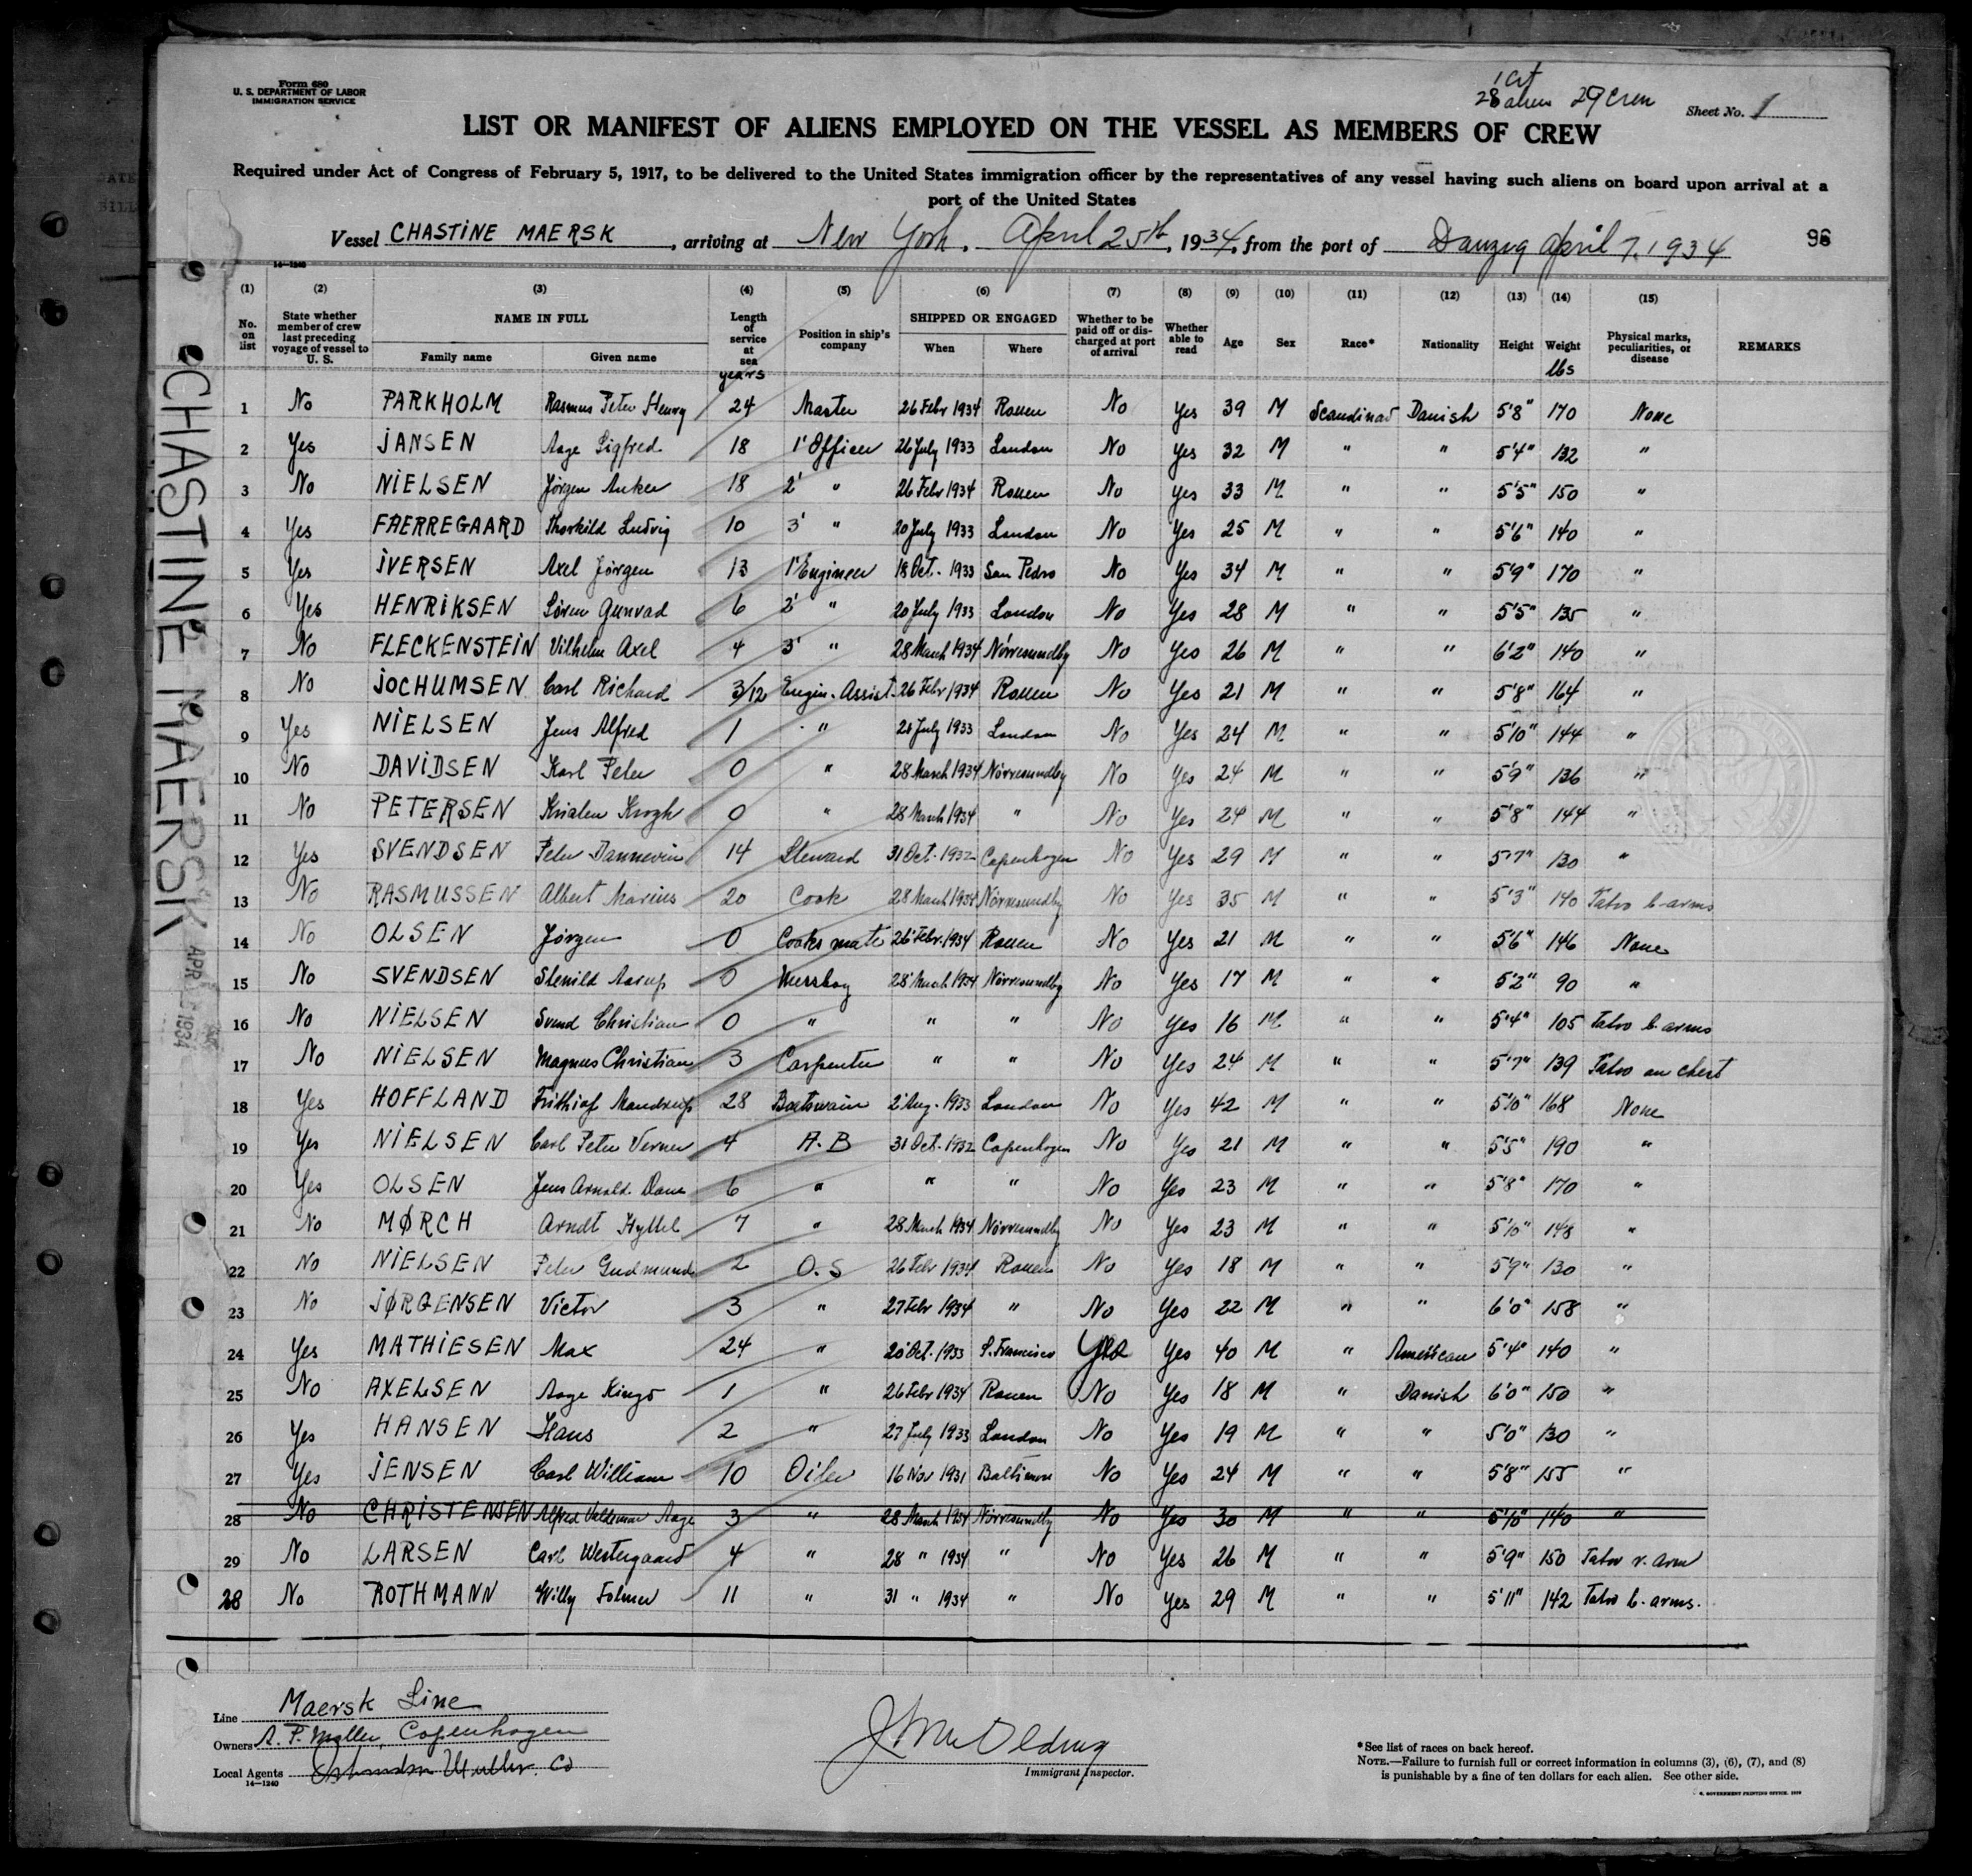 Form 680
U. S. DEPARTMENT OF LABOR
IMMIGRATION SERVICE
1 Cit
28 alien 29 Crew
Sheet No. 1
LIST OR MANIFEST OF ALIENS EMPLOYED ON THE VESSEL AS MEMBERS OF CREW
Required under Act of Congress of February 5, 1917, to be delivered to the United States immigration officer by the representatives of any vessel having such aliens on board upon arrival at a
port of the United States
Vessel CHASTINE MAERSK, arriving at New York, April 25th, 1934, from the port of Danzig April 7, 1934
96
14-1240
(1) (2) (3) (4) (5) (6) (7) (8) (9) (10) (11) (12) (13) (14) (15)
No. on list State whether member of crew last preceding voyage of vessel to U. S. NAME IN FULL Family name Given name Length of service at sea years Position in ship's company SHIPPED OR ENGAGED When Where Whether to be paid off or discharged at port of arrival Whether able to read Age Sex Race* Nationality Height Weight lbs Physical marks, peculiarities, or disease REMARKS
1 No PARKHOLM Rasmus Peter Henry 24 Master 26 Febr 1934 Rouen No Yes 39 M Scandinav Danish 5'8" 170 None
2 Yes JANSEN Aage Sigfred 18 1' Officer 26 July 1933 London No Yes 32 M " " 5'4" 132 "
3 No NIELSEN Jørgen Anker 18 2' " 26 Febr 1934 Rouen No Yes 33 M " " 5'5" 150 "
4 Yes FAERREGAARD Thorkild Ludvig 10 3' " 20 July 1933 London No Yes 25 M " " 5'6" 140 "
5 Yes IVERSEN Axel Jørgen 13 1' Engineer 18 Oct. 1933 San Pedro No Yes 34 M " " 5'9" 170 "
6 Yes HENRIKSEN Søren Gunvad 6 2' " 20 July 1933 London No Yes 28 M " " 5'5" 135 "
7 No FLECKENSTEIN Vilhelm Axel 4 3' " 28 March 1934 Nörresundby No Yes 26 M " " 6'2" 140 "
8 No JOCHUMSEN Carl Richard 3/12 Engin. Assist. 26 Febr 1934 Rouen No Yes 21 M " " 5'8" 164 "
9 Yes NIELSEN Jens Alfred 1 " 20 July 1933 London No Yes 24 M " " 5'10" 144 "
10 No DAVIDSEN Karl Peter 0 " 28 March 1934 Nörresundby No Yes 24 M " " 5'9" 136 "
11 No PETERSEN Krogh 0 " 28 March 1934 " No Yes 24 M " " 5'8" 144 "
12 Yes SVENDSEN Peter 14 Steward 31 Oct. 1932 Copenhagen No Yes 29 M " " 5'7" 130 "
13 No RASMUSSEN Albert Marius 20 Cook 28 March 1934 Nörresundby No Yes 35 M " " 5'3" 140 Tatoo b. arms
14 No OLSEN Jørgen 0 Cooks mate 26 Febr. 1934 Rouen No Yes 21 M " " 5'6" 146 None
15 No SVENDSEN Stenild Aarup 0 Messboy 28 March 1934 Nörresundby No Yes 17 M " " 5'2" 90 "
16 No NIELSEN Svend Christian 0 " " " No Yes 16 M " " 5'4" 105 Tatoo b. arms
17 No NIELSEN Magnus Christian 3 Carpenter " " No Yes 24 M " " 5'7" 139 Tatoo on chest
18 Yes HOFFLAND Frithiof Mandrup 28 Boatswain 2 Aug. 1933 London No Yes 42 M " " 5'10" 168 None
19 Yes NIELSEN Carl Peter Verner 4 A.B 31 Oct. 1932 Copenhagen No Yes 21 M " " 5'5" 190 "
20 Yes OLSEN Jens Arnold Dane 6 " " " No Yes 23 M " " 5'8" 170 "
21 No MØRCH Arndt Hyttel 7 " 28 March 1934 Nörresundby No Yes 23 M " " 5'10" 148 "
22 No NIELSEN Peter Gudmund 2 O.S 26 Febr 1934 Rouen No Yes 18 M " " 5'9" 130 "
23 No JØRGENSEN Victor 3 " 27 Febr 1934 " No Yes 22 M " " 6'0" 158 "
24 Yes MATHIESEN Max 24 " 20 Oct. 1933 S. Francisco Yes Yes 40 M " American 5'4" 140 "
25 No AXELSEN Aage Kingo 1 " 26 Febr 1934 Rouen No Yes 18 M " Danish 6'0" 150 "
26 Yes HANSEN Hans 2 " 27 July 1933 London No Yes 19 M " " 5'0" 130 "
27 Yes JENSEN Carl William 10 Oiler 16 Nov 1931 Baltimore No Yes 24 M " " 5'8" 155 "
28 No CHRISTENSEN Alfred Valdemar Aage 3 " 28 March 1934 Nörresundby No Yes 30 M " " 5'10" 140 "
29 No LARSEN Carl Westergaard 4 " 28 " 1934 " No Yes 26 M " " 5'9" 150 Tatoo r. arm
28 No ROTHMANN Willy Folmer 11 " 31 " 1934 " No Yes 29 M " " 5'11" 142 Tatoo b. arms.
CHASTINE MAERSK
APR 1934
Line Maersk Line
Owners A. P. Møller, Copenhagen
Local Agents Muller Co
14-1240
Immigrant Inspector.
*See list of races on back hereof.
NOTE.—Failure to furnish full or correct information in columns (3), (6), (7), and (8)
is punishable by a fine of ten dollars for each alien. See other side.
GOVERNMENT PRINTING OFFICE